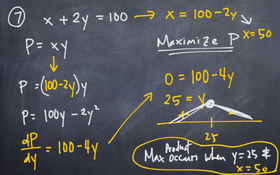 ⑦ x + 2y = 100 → x = 100 - 2y
P = xy
Maximize P
x = 50
P = (100-2y)y
0 = 100 - 4y
25 = y
P = 100y - 2y²
dP/dy = 100 - 4y
25
Product
Max occurs when y = 25 &
x = 50